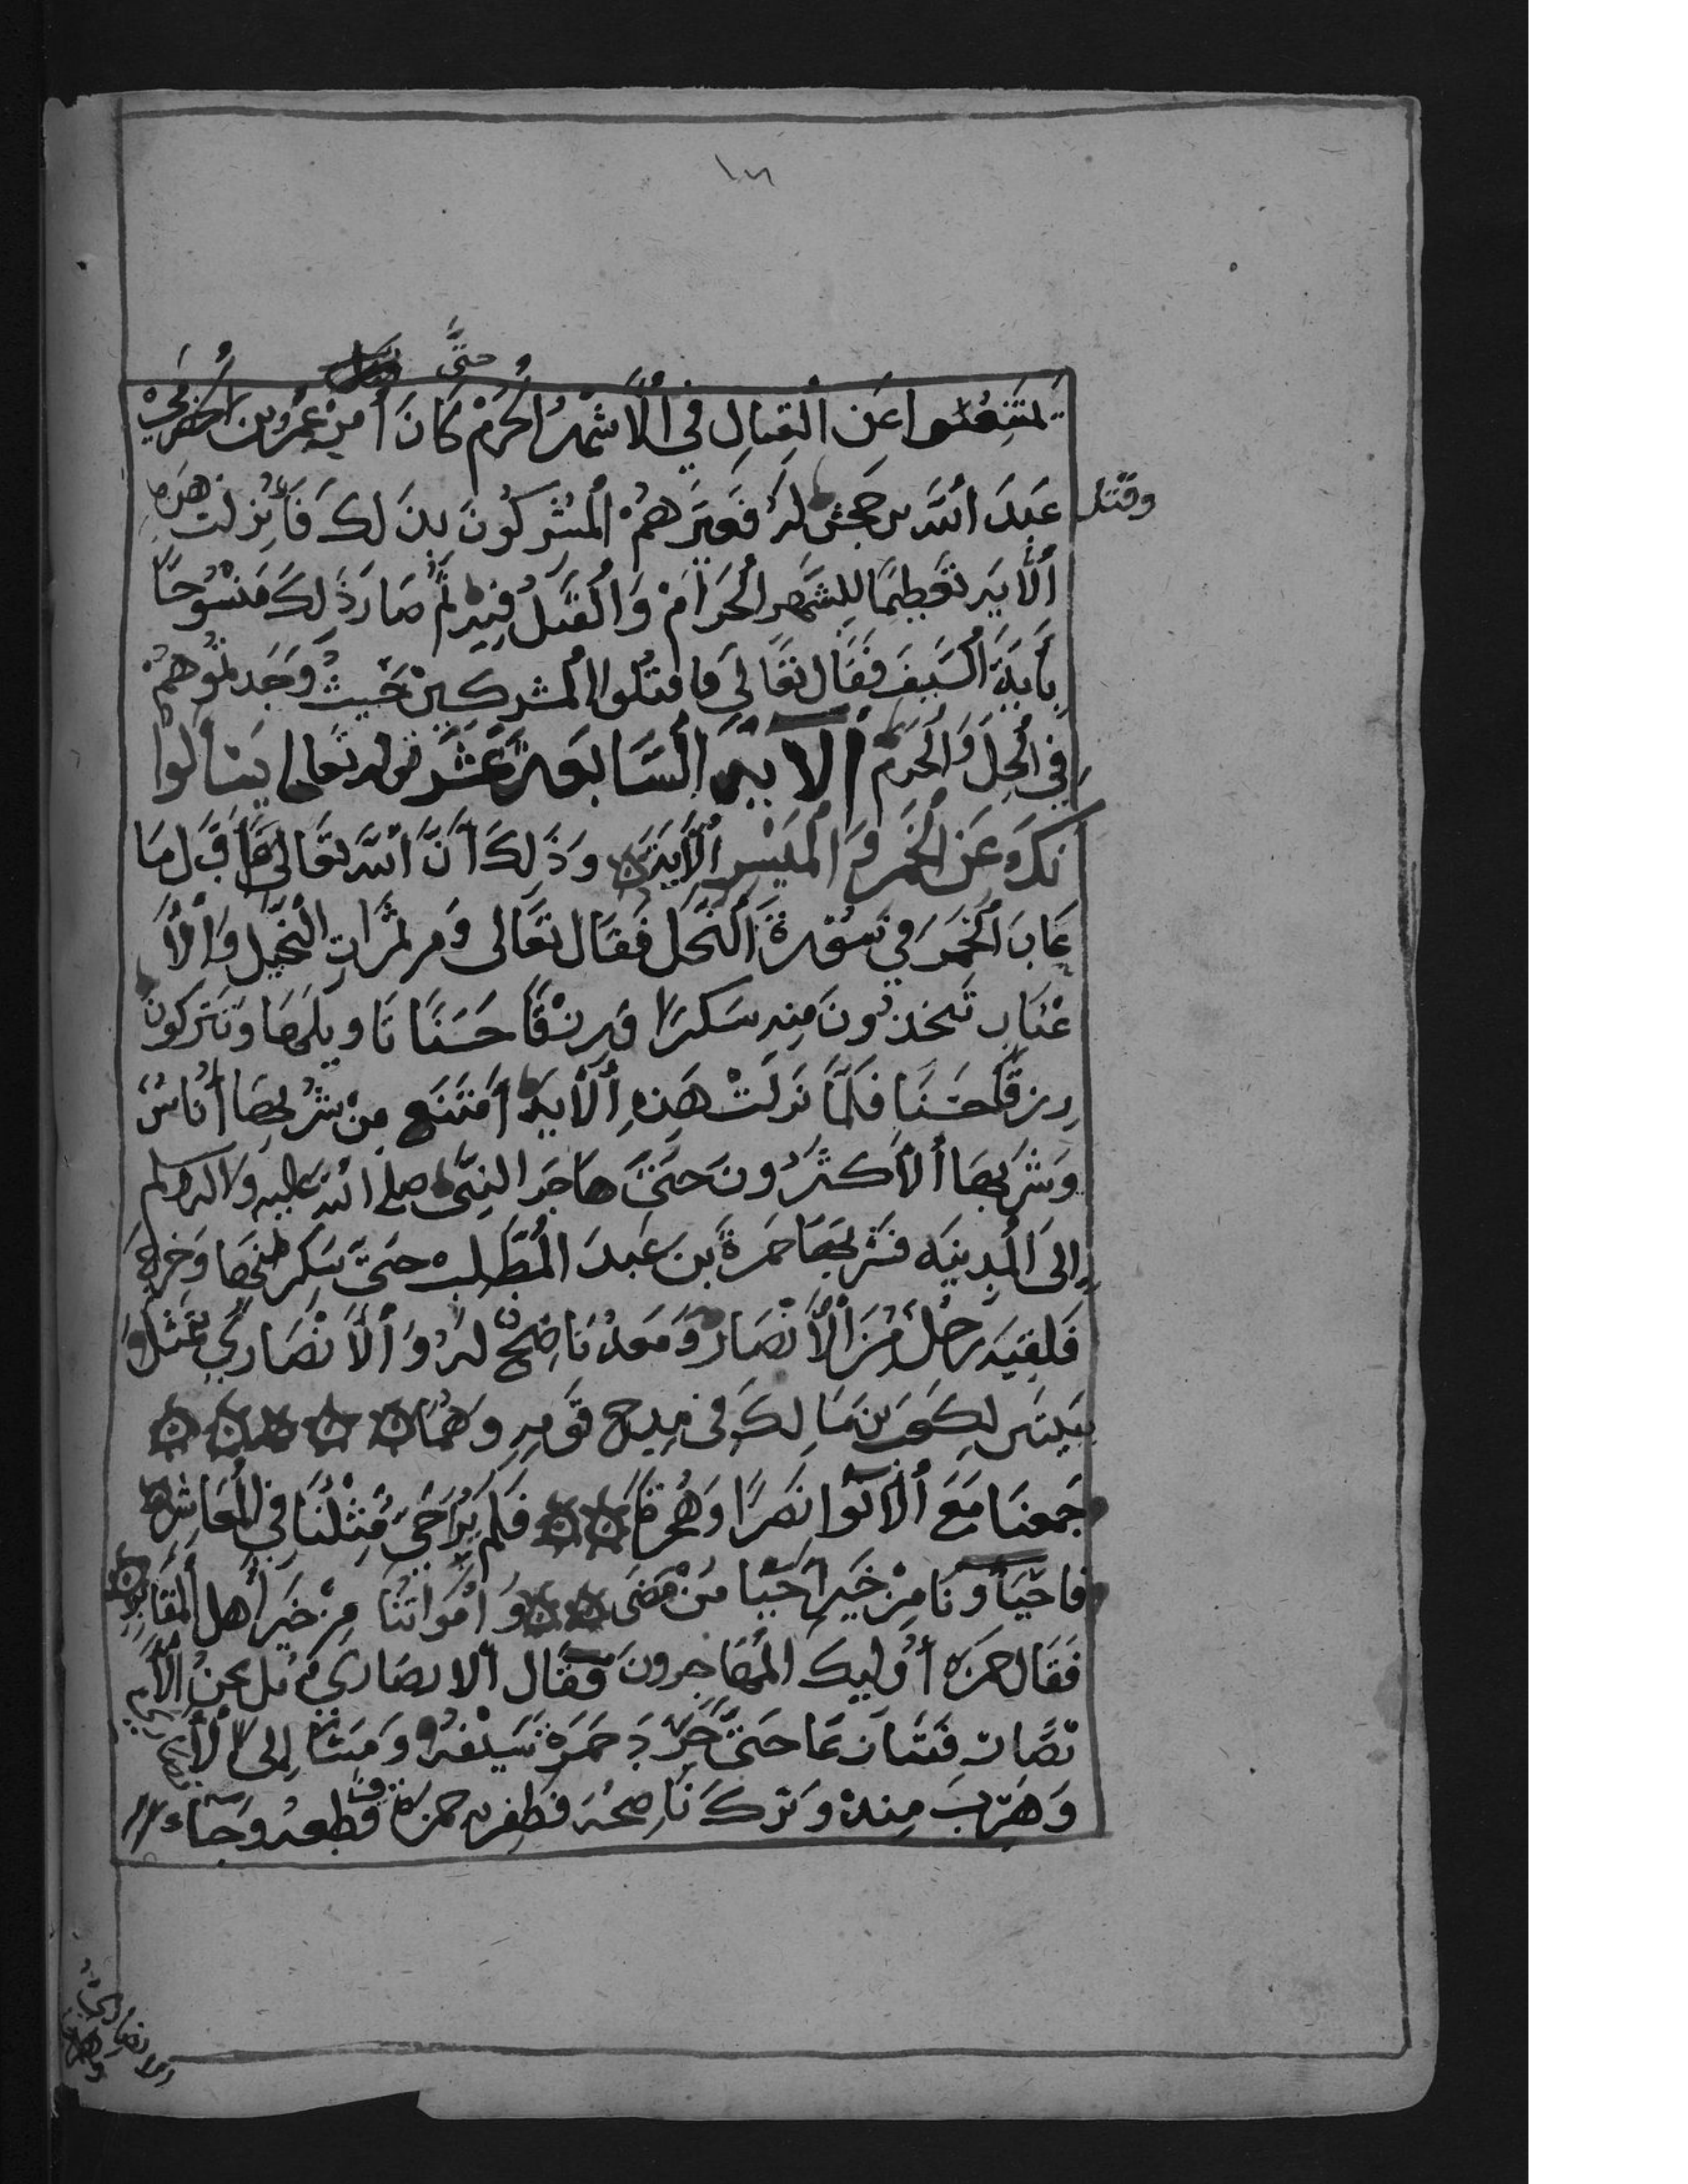 ١٣
حتى
يمتنعوا عن القتال في الاشهر الحرم كان أمر عمرو بن الحضرمي
وقتل
عبد الله بن جحش له فعيرهم المشركون بذلك فأنزلت هذه
الآية تعظيما للشهر الحرام والقتل فيه ثم صار ذلك منسوخا
بآية السيف فقال تعالى فاقتلوا المشركين حيث وجدتموهم
في الحل والحرم الآية السابعة عشر قوله تعالى يسألوا
نك عن الخمر والميسر الآية وذلك أن الله تعالى قبل ما
عاب الخمر في سورة النحل فقال تعالى ومن ثمرات النخيل والأ
عناب تتخذون منه سكرا ورزقا حسنا ناويلها وتتركون
رزقا حسنا فلما نزلت هذه الآية امتنع من شربها أناس
وشربها الأكثرون حتى هاجر النبي صلى الله عليه وآله وسلم
إلى المدينه فشربها حمزة بن عبد المطلب حتى سكر منها وخرج
فلقيه رجل من الأنصار ومعه ناضح له والأنصاري يتمثل
ببيتين لكعب بن مالك في مدح قومه وهما
جمعنا مع الآوا نصرا وهجرة فلم يرا حي مثلنا في المعاشر
فاحياونا من خير احيا من مضى وامواتنا من خير أهل المقابر
فقال حمزه أوليك المهاجرون فقال الانصاري بل نحن الأ
نصار فتنازعا حتى جرد حمزة سيفه ومشا إلى الأنصاري
وهرب منه وترك ناضحه فظفر به حمزة فقطعه وجاء
الانصاري